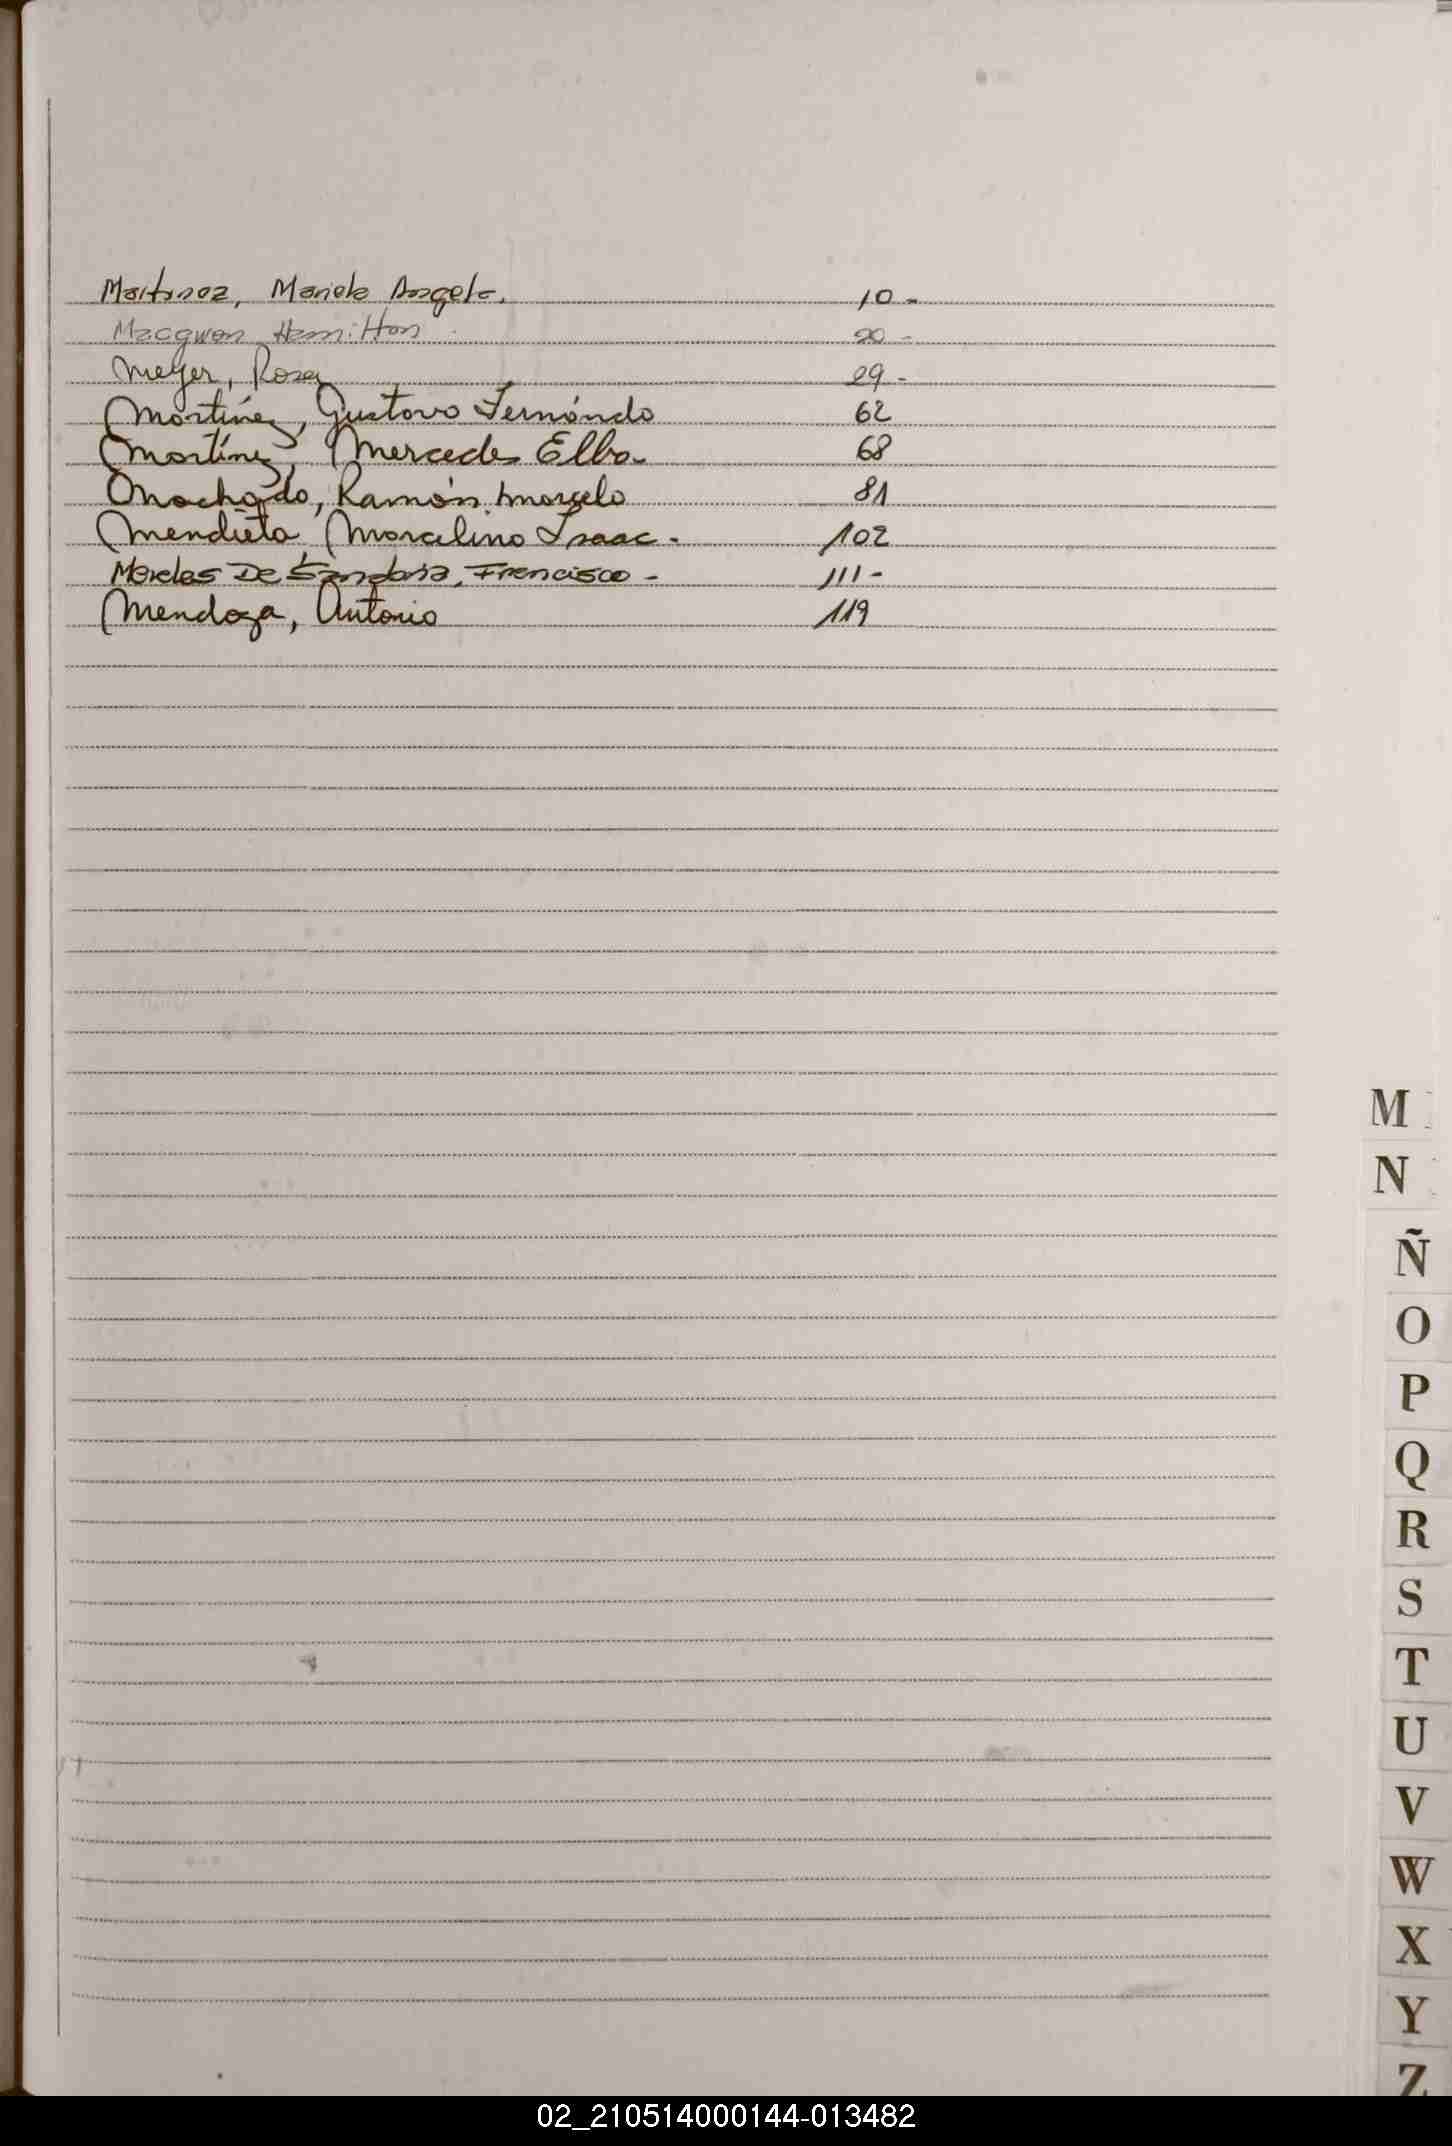 Martinez, Mariela Angela. 10-
Macgwon Hamilton 20-
Meyer, Rosa 29-
Martínez, Gustavo Fernándo 62
Martínez, Mercedes Elba- 68
Machado, Ramón Marcelo 81
Mendieta, Marcelino Isaac- 102
De Francisco- 111-
Mendoza, Antonio 119
M
N
Ñ
O
P
Q
R
S
T
U
V
W
X
Y
Z
02_210514000144-013482